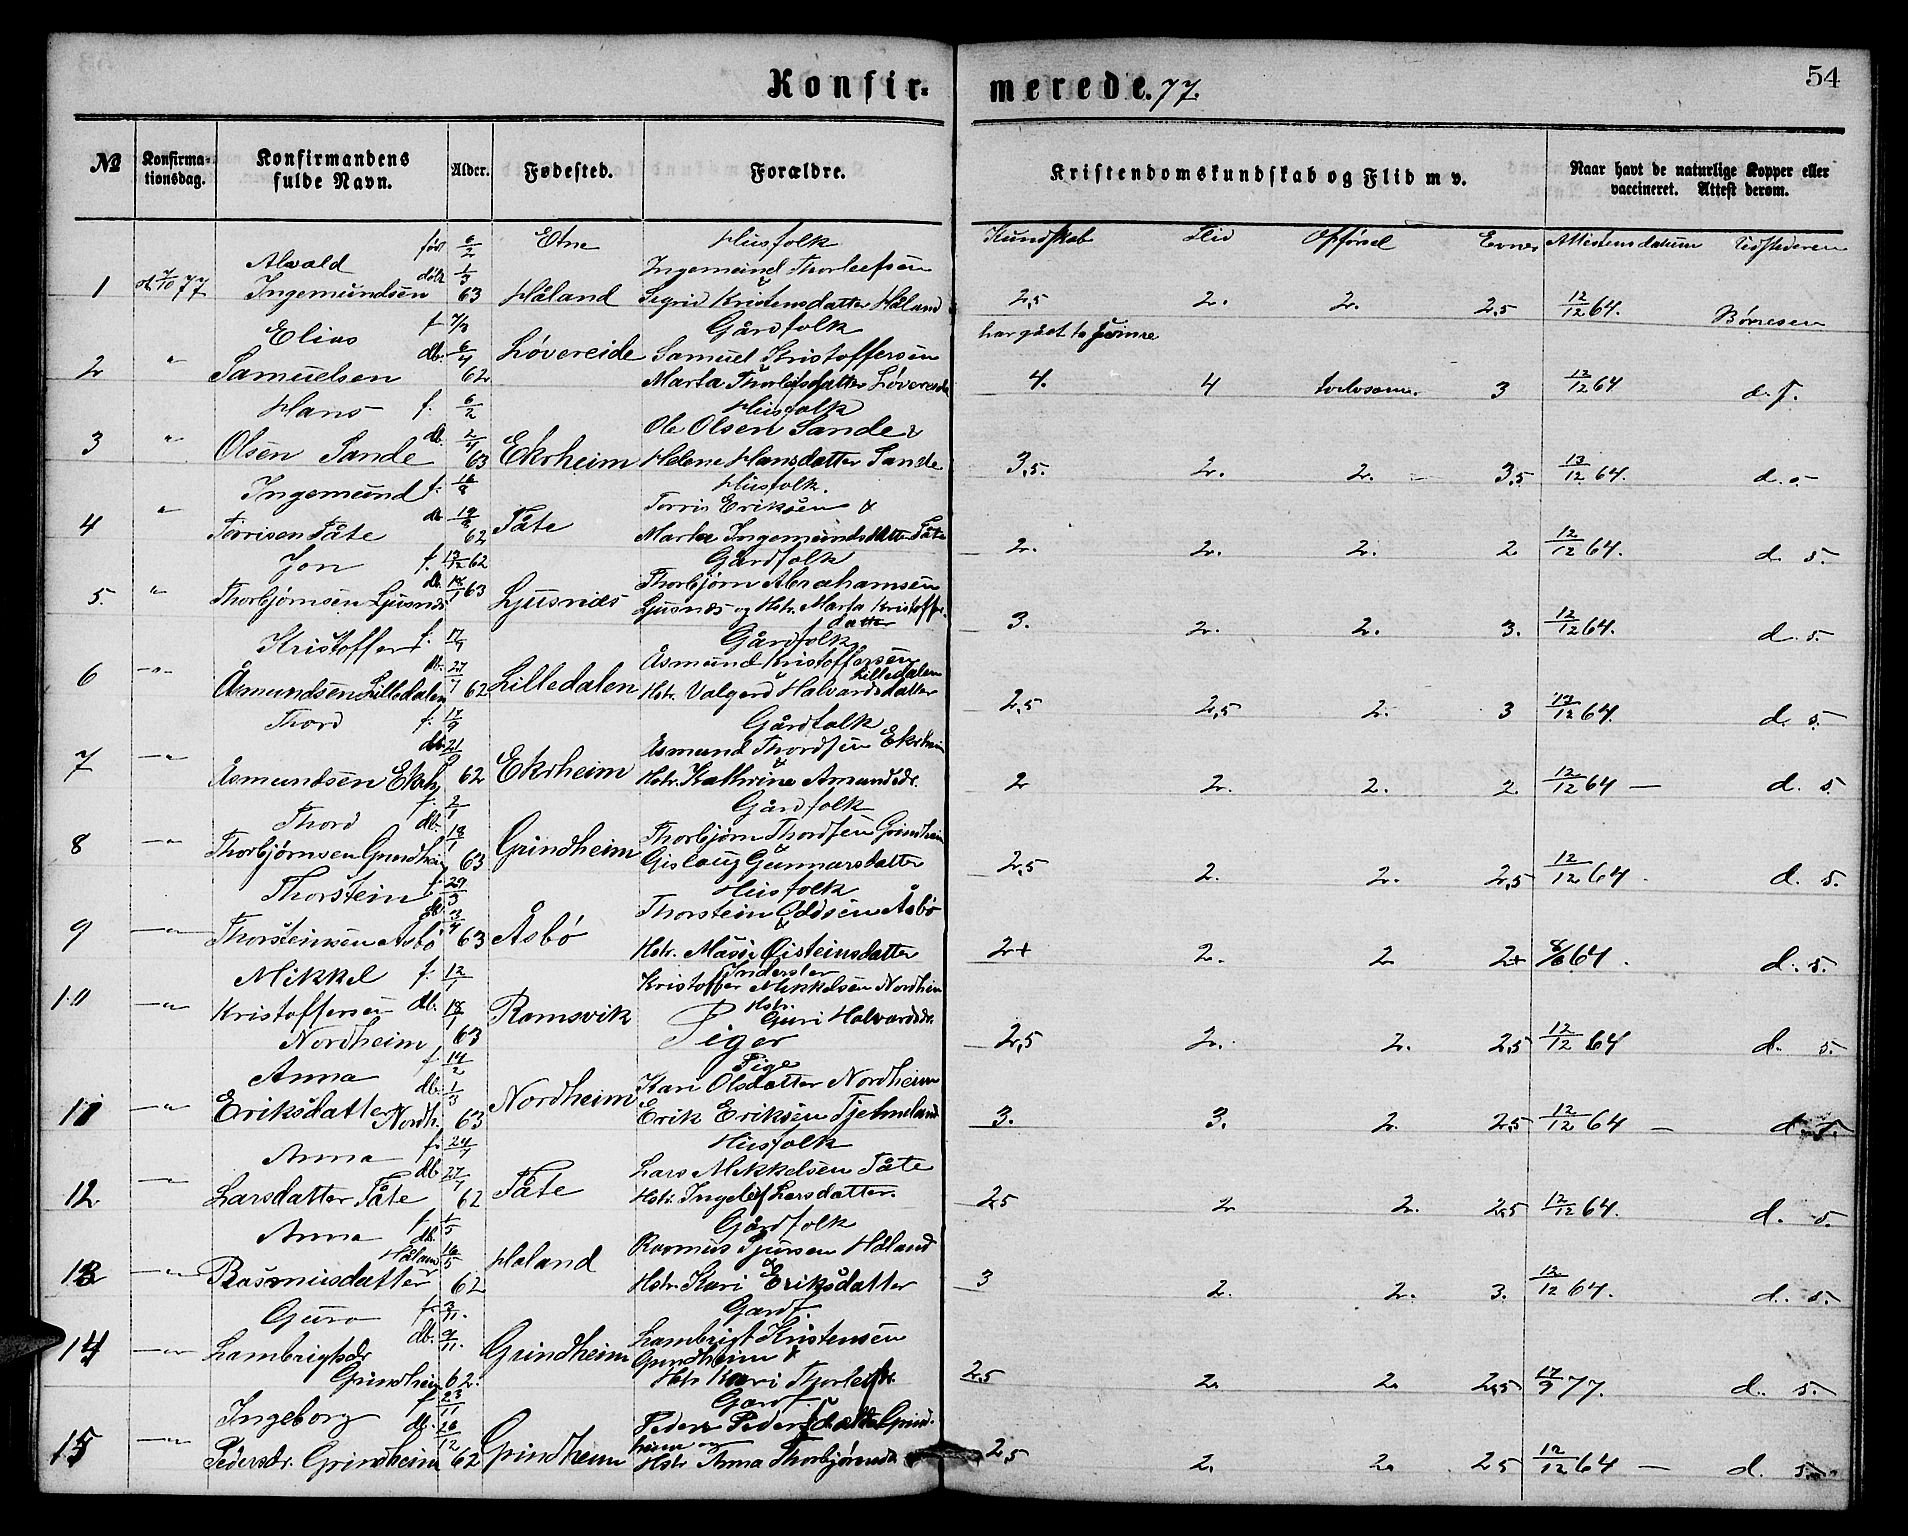 54
Konfir= merede. 77.
№ Konfirma-tionsdag. Konfirmandens fulde Navn. Alder. Fødested. Forældre. Kristendomskundskab og Flid m v. Naar havt de naturlige Kopper eller vaccineret. Attest derom.
Etne Husfolk Kundskab Flid Opførsel Evner Attestens datum Udstederen
Alvald fød 6/2 Ingemund Thorleefsen
1 7/10 77 Ingemundsen døbt 1/3 63 Håland Sigrid Kristensdatter Håland 2,5 2. 2. 2,5 12/12 64. Børresen
Elias f 7/3 Gårdfolk har gået to
2 " Samuelsen db. 6/4 62 Løvereide Samuel Kristoffersen
Marta Thorleifsdatter Løvereide 4. 4 3 12/12 64 d. s.
Hans f. 6/2 Husfolk
3 " Olsen Sande db. 2/4 63 Ekrheim Ole Olsen Sande &
Helene Hansdatter Sande 3,5. 2. 2. 3,5 13/12 64. d. s.
Ingemund f. 16/8 Husfolk.
4 " Torrisen Tåte db. 19/8 62 Tåte Torris Eriksen &
Marta Ingemundsdatter Tåte 2. 2. 2. 2 12/12 64. d. s.
Jon f. 13/12 62 Gårdfolk
5. " Thorbjørnsen Ljusnæs db. 18/1 63 Ljusnæs Thorbjørn Abrahamsen
Ljusnæs og Hstr. Marta Kristoffers
datter 3. 2. 2. 3. 12/12 64. d. s.
Kristoffer f. 17/7 Gårdfolk
6 " Åsmundsen Lilledalen db. 27/7 62 Lilledalen Åsmund Kristoffersen Lilledalen
Hstr. Valgerd Halvardsdatter 2,5 2,5 2. 3 12/12 64. d. s.
Thord f. 17/9 Gårdfolk
7 " Åsmundsen Ekrh. db. 21/9 62 Ekrheim Åsmund Thordsen Ekrheim
Hstr. Kathrine Amundsdr. 2 2. 2. 2. 12/12 64 — d. s.
Thord f. 2/1 Gårdfolk
8 " Thorbjørnsen Grindheim db. 18/1 63 Grindheim Thorbjørn Thordsen Grindheim
Gislaug Gunnarsdatter 2,5 2. 2. 2,5 12/12 64. d. s.
Thorstein f. 29/3 Husfolk
9 " Thorsteinsen Åsbø db. 3/4 63 Åsbø Thorstein Oddsen Åsbø
Hstr. Massi Øisteinsdatter 2+ 2. 2 2+ 8/6 64. d. s.
Mikkel f. 12/1 Inderster
10 " Kristoffersen db. 18/1 Ramsvik Kristoffer Mikkelsen Nordheim
Nordheim 63 Hstr. Guri Halvardsdr. 2,5 2. 2. 2,5 12/12 64 d. s.
Piger
Anna f. 14/2 Pige
11 " Eriksdatter Nordh. db. 1/3 63 Nordheim Kari Olsdatter Nordheim
Erik Eriksen Tjelmeland 3. 3. 2. 2,5 12/12 64 — d. s.
Anna f. 24/7 Husfolk
12 " Larsdatter Tåte db. 27/7 62 Tåte Lars Mikkelsen Tåte
Hstr. Ingeleif Larsdatter. 2,5 2 2. 2,5 12/12 64. d. s.
Anna f. 1/5 Gårdfolk
13 " Rasmusdatter Håland db. 16/5 62 Haland Rasmus Sjursen Håland
Hstr. Kari Eriksdatter 3 2. 2. 3. 12/12 64. d. s.
Guro f. 3/11. Gardf.
14 " Lambrigtsdr. db. 9/11. Grindheim Lambrigt Kristensen
Grindheim 62. Grindheim &
Hstr Kari Thorleifsdr. 2,5 2. 2. 2,5 17/9 77. d. s.
Ingeborg f. 23/11 Gardf.
15 " Pedersdr. Grindheim db. 26/12 62 Grindheim Peder Grind-
heim og
Hstr Anna Thorbjørnsd. 2,5 2. 2. 2,5 12/12 64 — d. s.